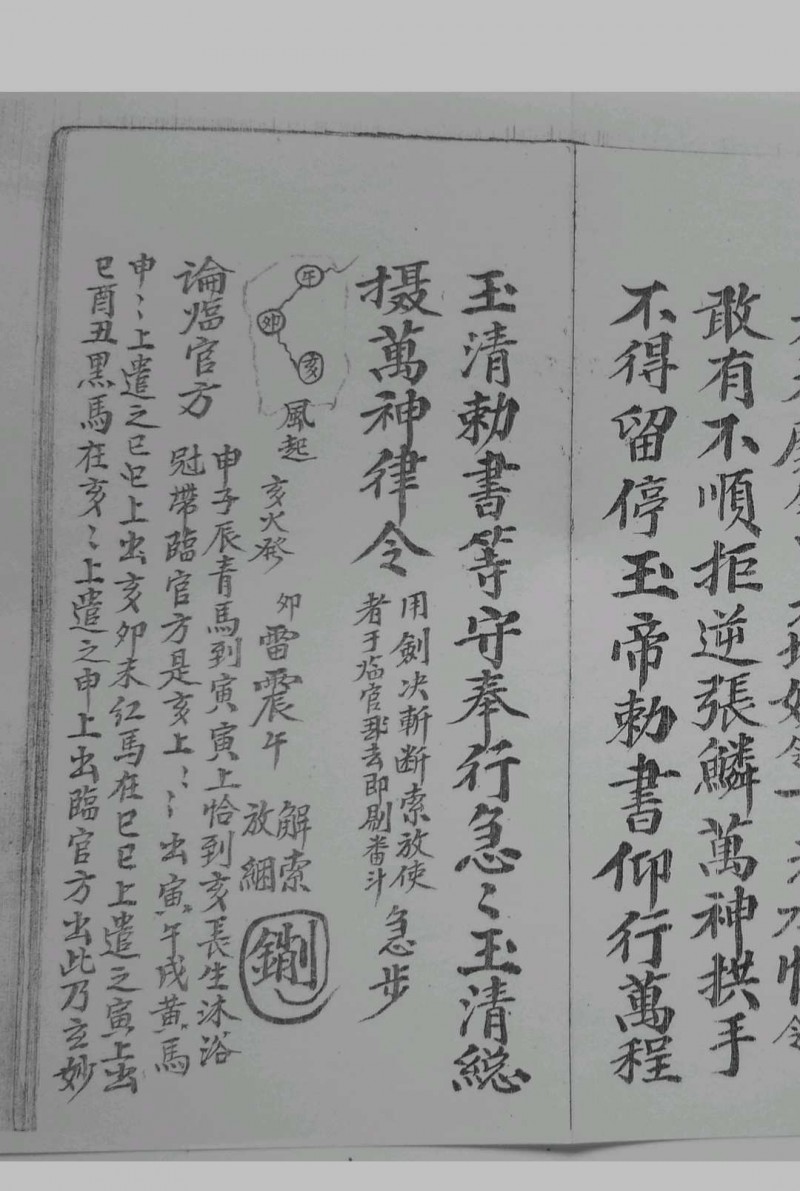 敢有不順拒逆張鱗萬神拱手
不得留停玉帝勅書仰行萬程
玉清勅書等守奉行急〻玉清総
摄萬神律令
用劍决斬断索放使
者于临官
去即剔畨斗
急步
午
卯
亥
風起
亥火発
卯雷震
午
解索
放綑
論临官方
申子辰青馬到寅寅上恰到亥長生沐浴
冠帶臨官方是亥上〻〻出寅午戌黄馬
申〻上遣之巳巳上出亥卯未红馬在巳巳上遣之寅上出
巳酉丑黒馬在亥〻上遣之申上出臨官方出此乃立妙